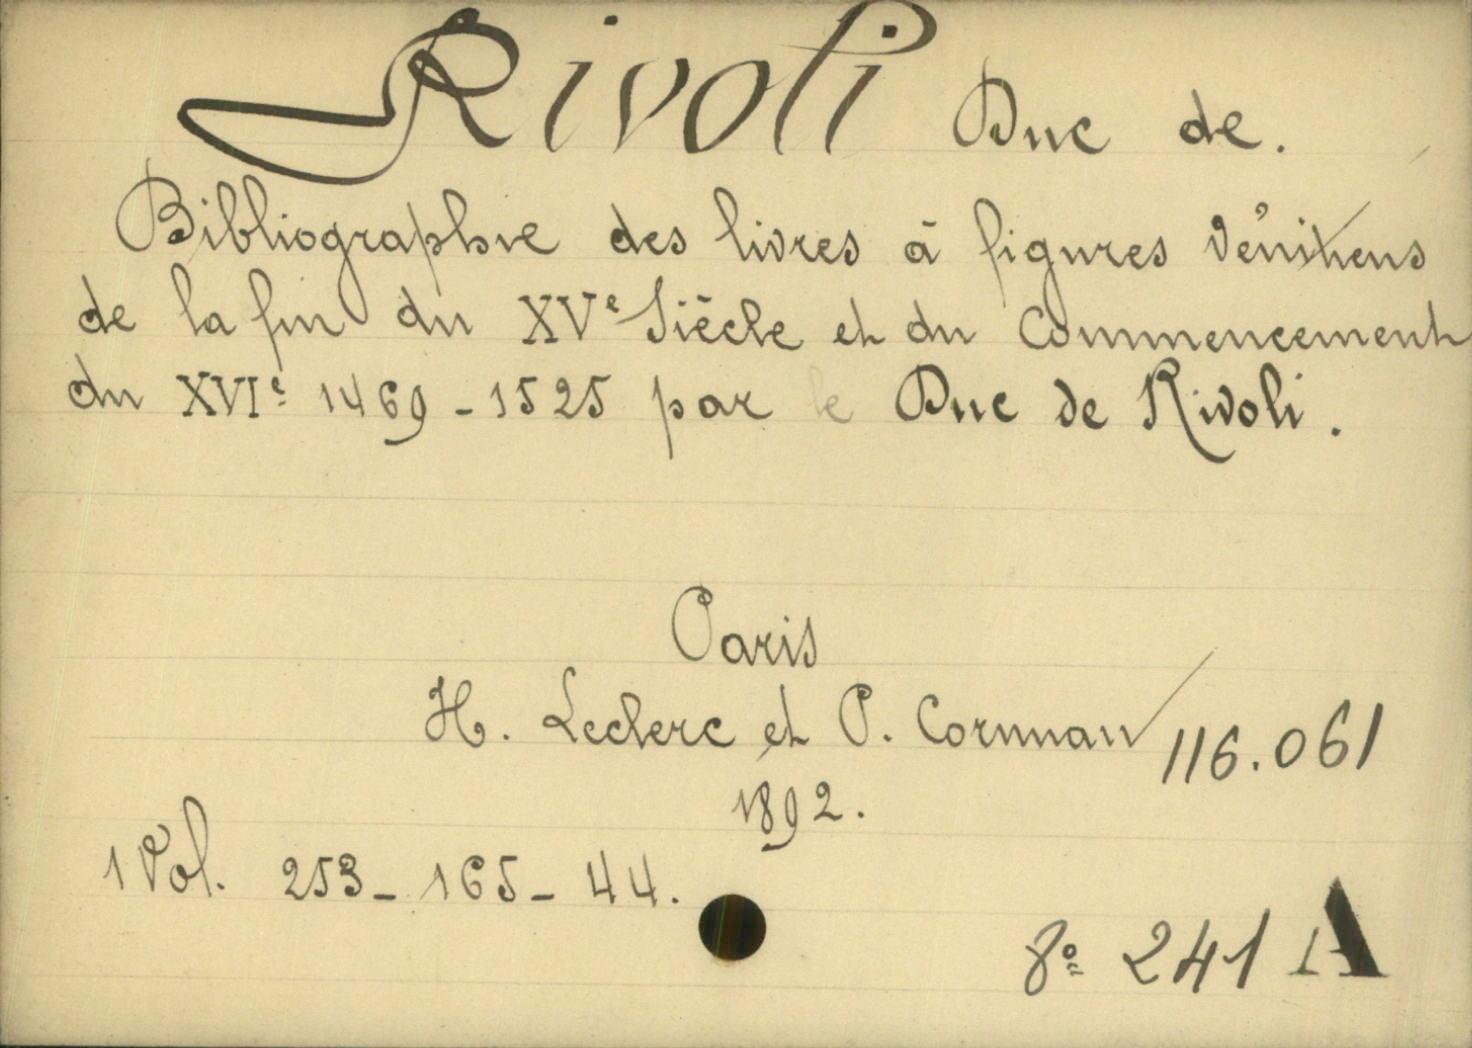 Rivoli Duc de.
Bibliographie des livres à figures Vénitiens
de la fin du XVe Siècle et du Commencement
du XVIe 1469-1525 par le Duc de Rivoli.
Paris
H. Leclerc et P. Cornuau
116.061
1892.
1 Vol. 253-165-44.
8º 241 A